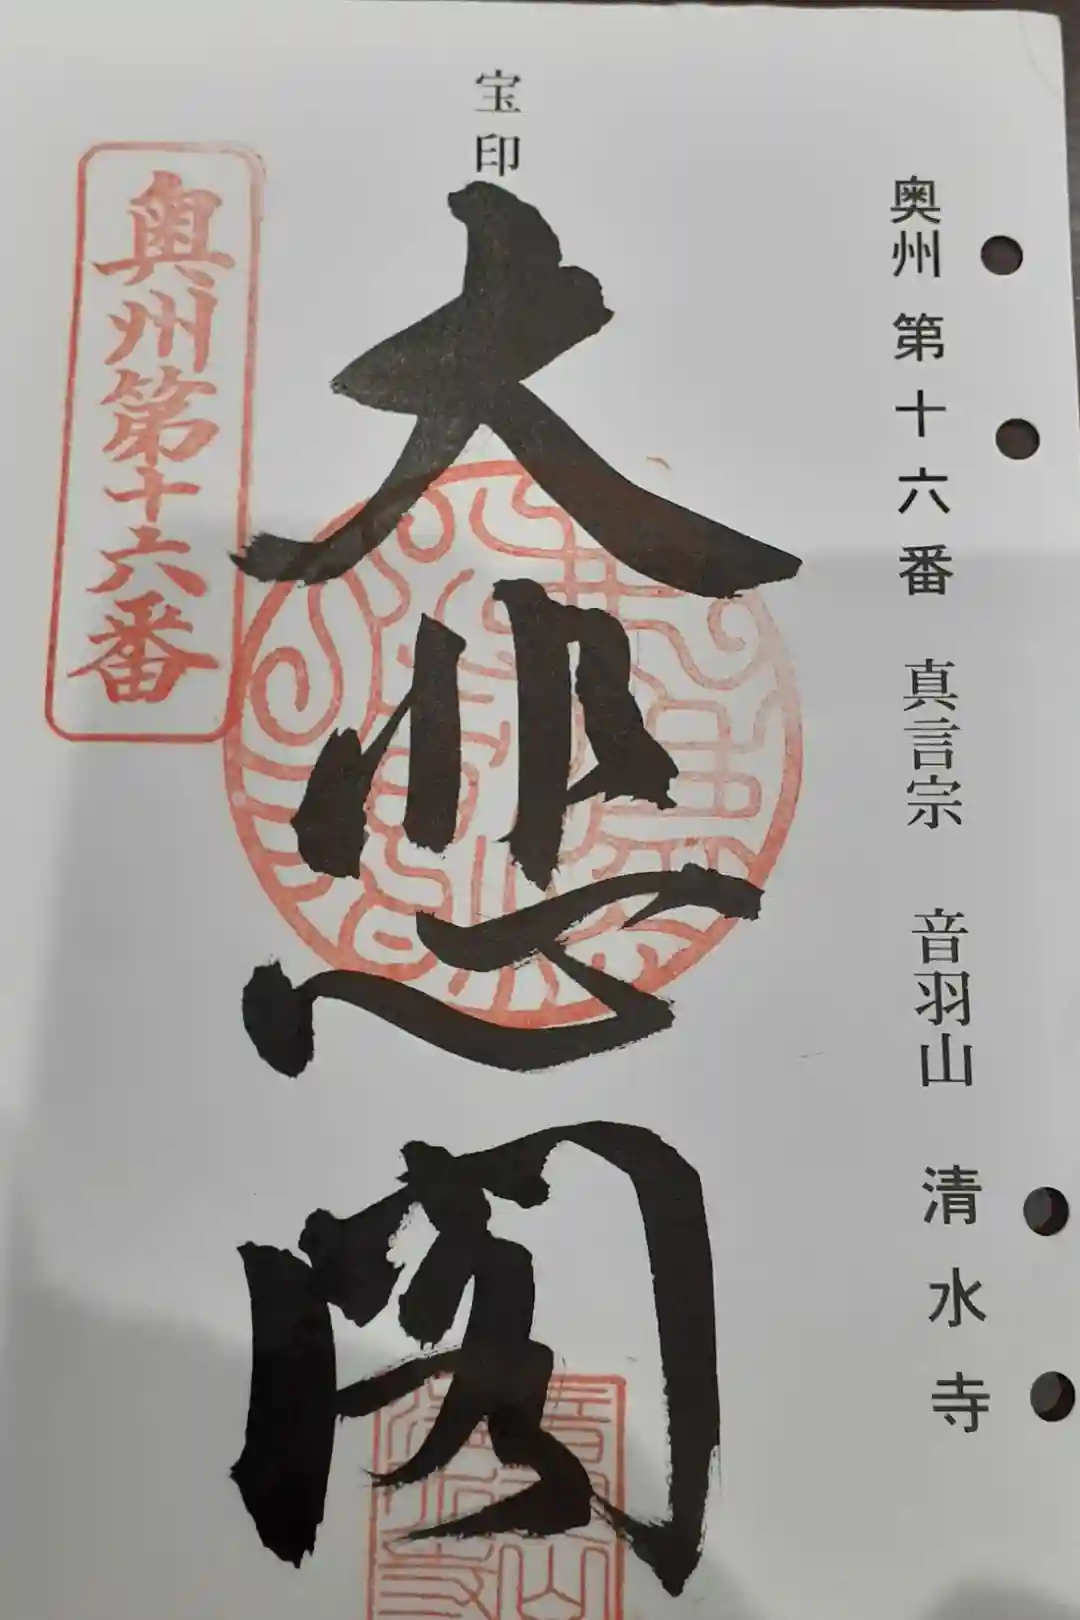 奥州第十六番 真言宗 音羽山 清水寺
宝印
大悲閣
奥州第十六番